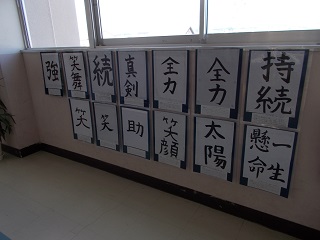 強
笑舞
続
真剣
全力
全力
持続
笑
笑
助
笑顔
太陽
一生懸命